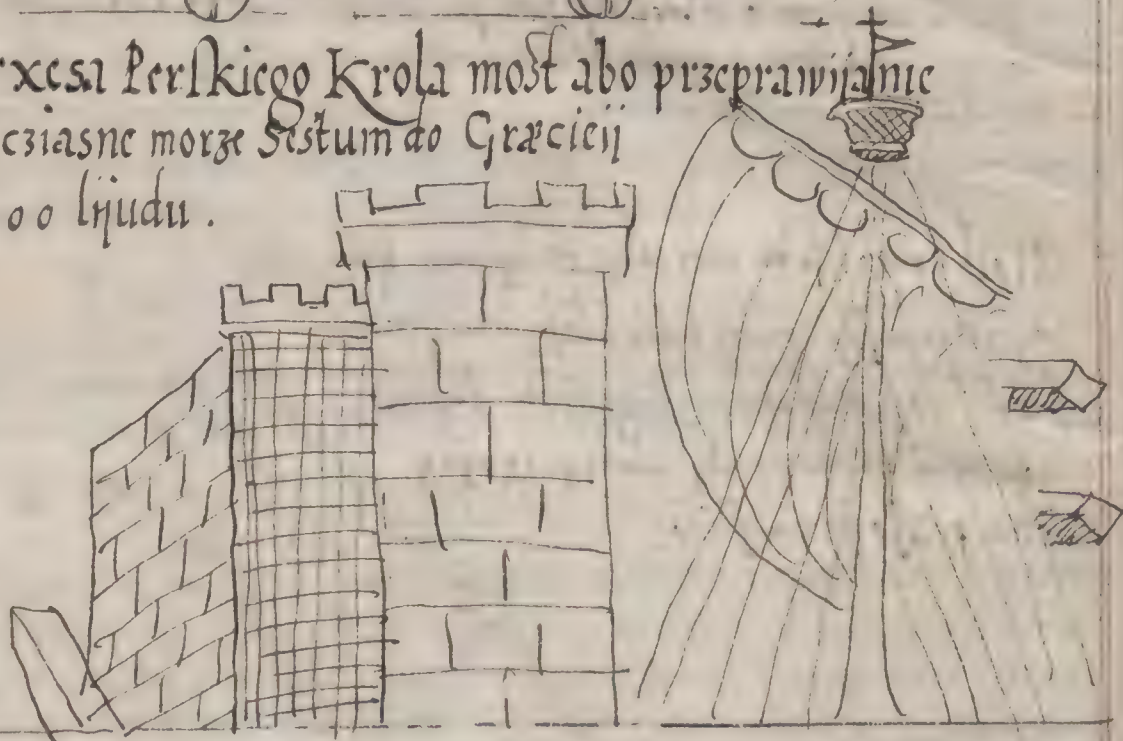 rxesa Perskiego Krola most abo przeprawijanie
cziasne morze Sestum do Græcieij
00 lijudu.